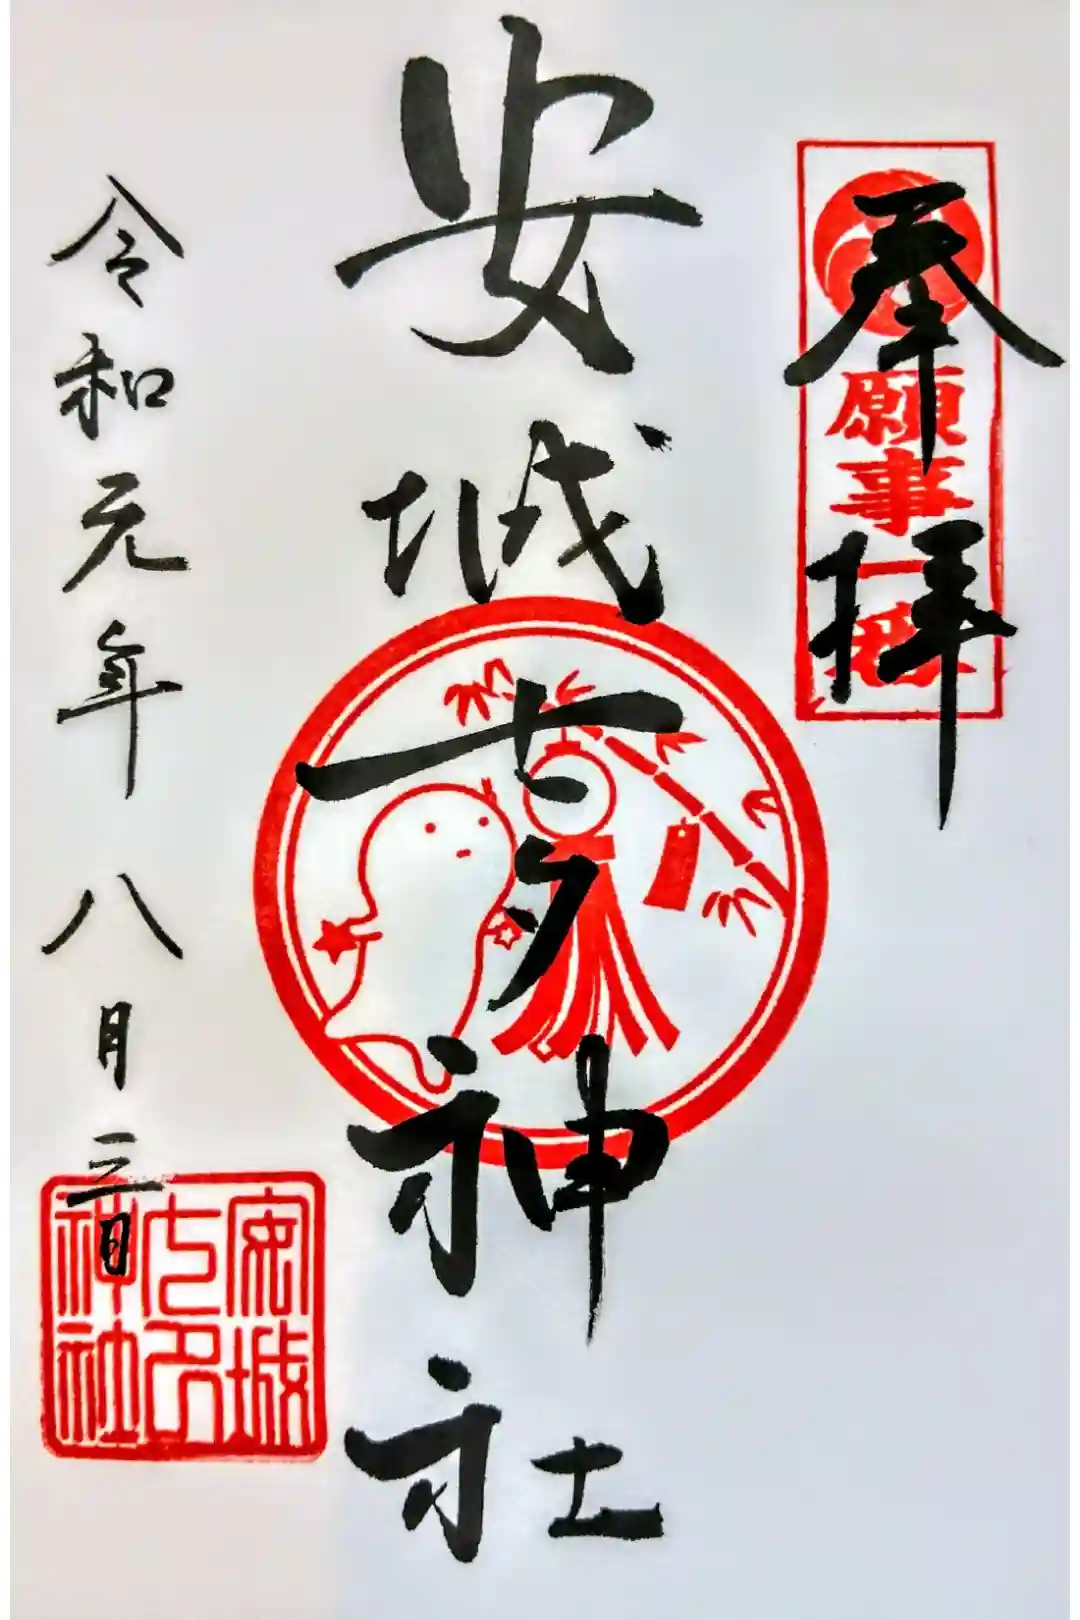 奉拝
願事
安城七夕神社
令和元年八月三日
安城
七夕
神社